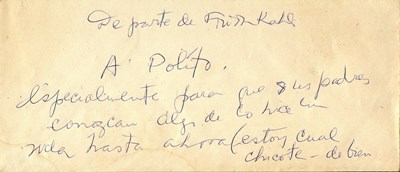 De parte de Frida Kahlo
A Polito.
Especialmente para que sus padres
conozcan algo de lo hice en
vida hasta ahora (estoy cual
chicote - de bien